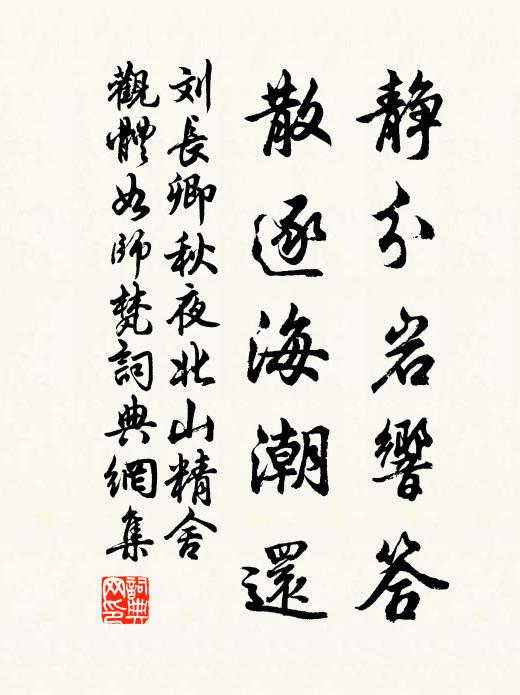 静分岩響答
散逐海潮還
刘長卿秋夜北山精舍
觀體如師梵詞典網集
詞典